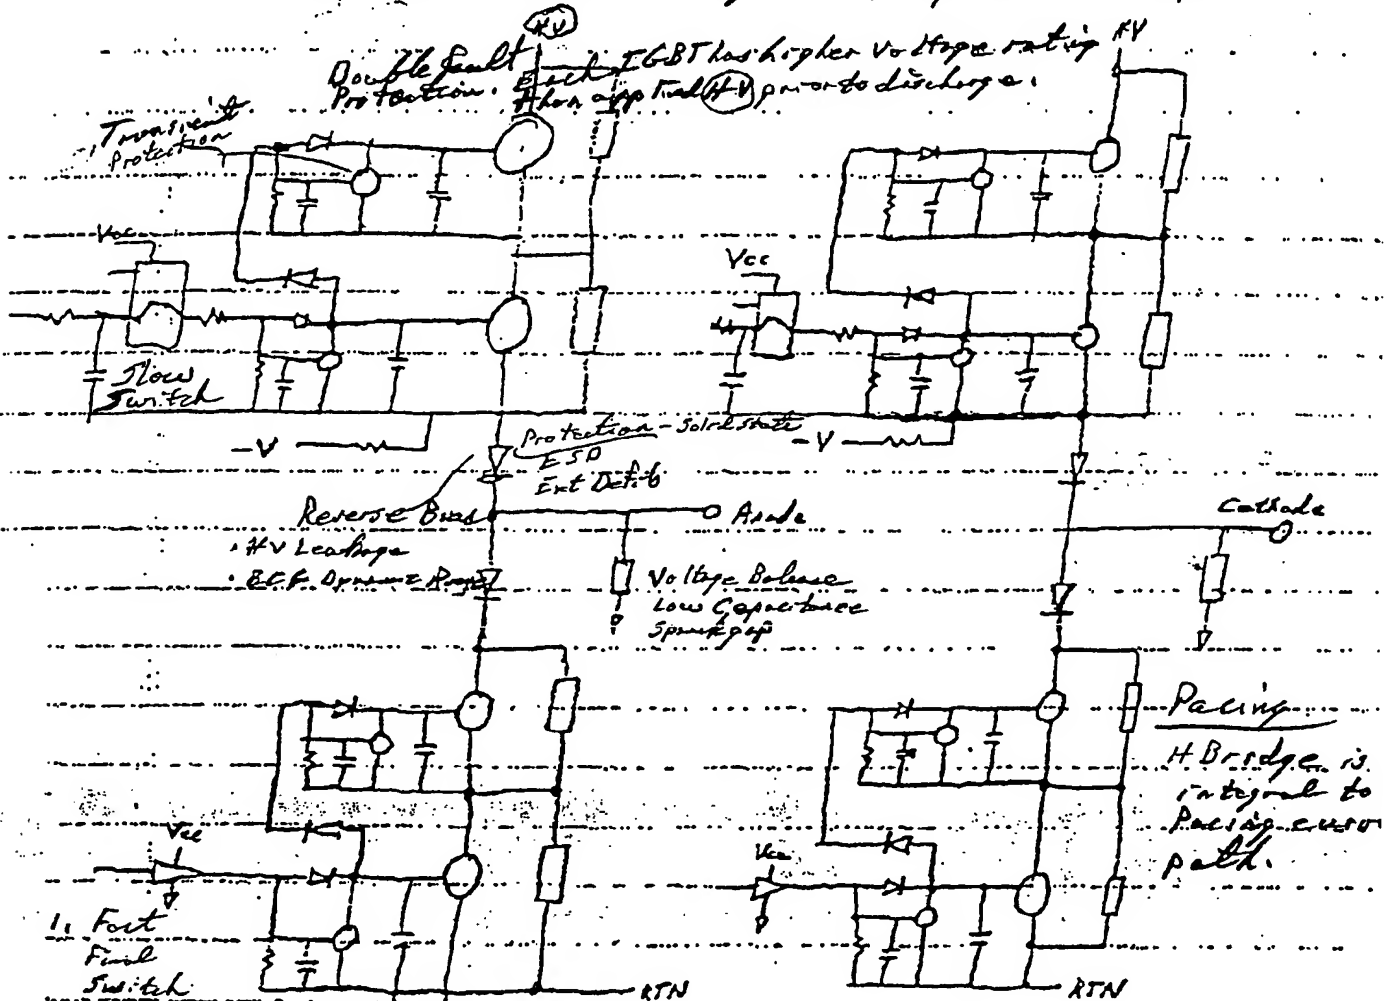 HV
HV
Double fault
Protection. Each IGBT has higher voltage rating
than applied HV prior to discharge.
Transient
Protection
Vcc
Vcc
Slow
Switch
-V
-V
Protection - Solid state
ESD
Ext Defib
Reverse Bias
Anode
Cathode
. HV Leakage
. Dynamic Range
Voltage Balance
Low Capacitance
Sparkgap
Pacing
H Bridge is
integral to
Pacing
path.
Vcc
Vcc
1. Fast
Final
Switch
RTN
RTN